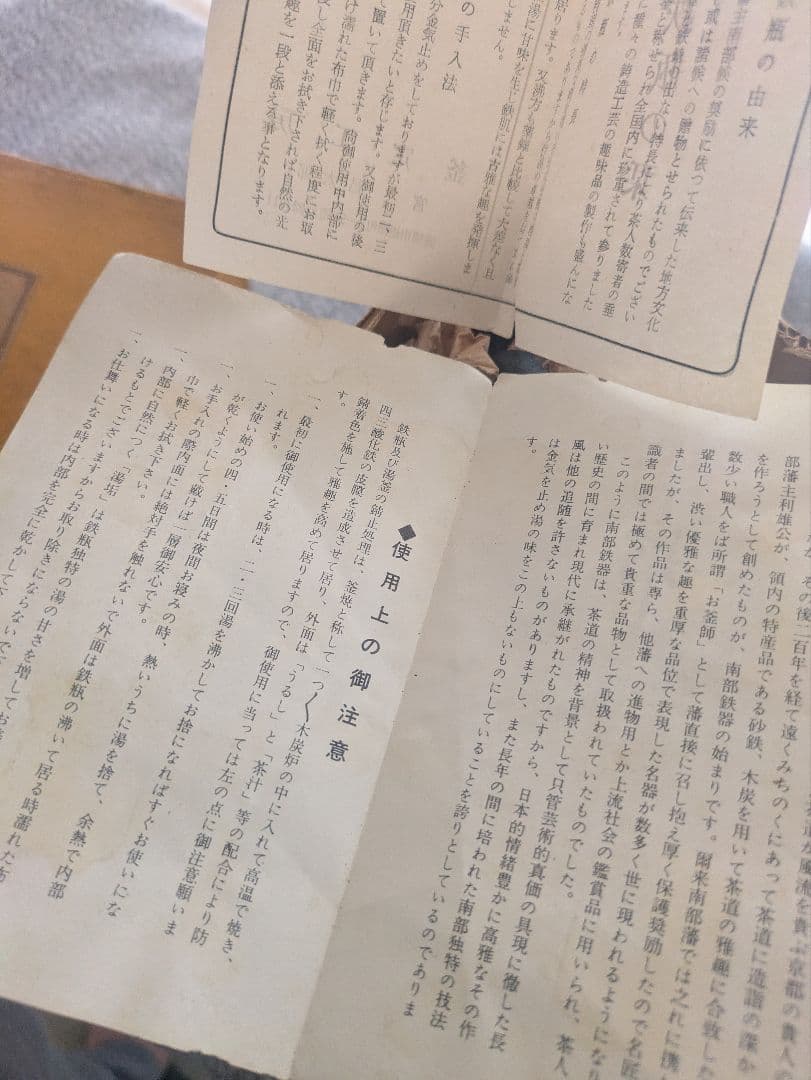 瓶の由来
主南部候の奨励に依つて伝来した地方文化
或は諸候への贈物とせられたものでござい
特長により茶人数寄者の垂
と称せられ全国内に珍重されて参りました
種々の鋳造工芸の趣味品の製作も盛んにな
湯に甘味を生じ鉄肌には古雅な趣を発揮しま
しません。
の手入法
分金気止めをしておりますが最初二、三
用頂きたいと存じます。又御使用の後
て置いて頂きます。尚御使用中内部に
け濡れた布巾で軽く拭く程度にお取
し全面をお拭き下されば自然の光
趣を一段と添える事となります。
その後二百年を経て遠くみちのくにあって茶道に造詣の深か
部藩主利雄公が、領内の特産品である砂鉄、木炭を用いて茶道の雅趣に合致した
を作ろうとして創めたものが、南部鉄器の始まりです。爾来南部藩では之れに携
数少い職人をば所謂「お釜師」として藩直接に召し抱え厚く保護奨励したので名匠
輩出し、渋い優雅な趣を重厚な品位で表現した名器が数多く世に現われるようになり
ましたが、その作品は専ら、他藩への進物用とか上流社会の鑑賞品に用いられ、茶人
識者の間では極めて貴重な品物として取扱われていたものでした。
このように南部鉄器は、茶道の精神を背景として只管芸術的真価の具現に徹した長
い歴史の間に育まれ現代に承継がれたものですから、日本的情緒豊かに高雅なその作
風は他の追随を許さないものがありますし、また長年の間に培われた南部独特の技法
は金気を止め湯の味をこの上もないものにしていることを誇りとしているのでありま
す。
◆使用上の御注意
鉄瓶及び湯釜の錆止処理は、釜焼と称して一つ〱木炭炉の中に入れて高温で焼き、
四三酸化鉄の皮膜を造成させて居り、外面は「うるし」と「茶汁」等の配合により防
錆着色を施して雅趣を高めて居りますので、御使用に当っては左の点に御注意願いま
す。
一、最初に御使用になる時は、二・三回湯を沸かしてお捨になればすぐお使いにな
れます。
一、お使い始めの四・五日間は夜間お寝みの時、熱いうちに湯を捨て、余熱で内部
が乾くようにして戴けば一層御安心です。
一、お手入れの際内面には絶対手を触れないで外面は鉄瓶の沸いて居る時濡れた布
巾で軽くお拭き下さい。
一、内部に自然につく「湯垢」は鉄瓶独特の湯の甘さを増してお
けるもとでございますからお取り除きにならないで
一、お仕舞いになる時は内部を完全に乾かして